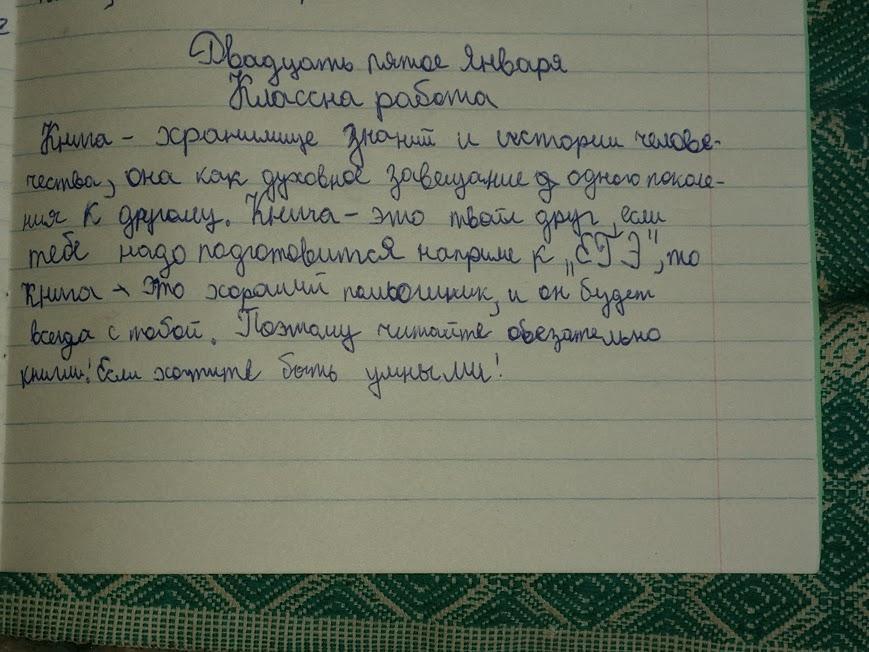 Двадцать пятое января
Классна работа
Книга - хранилище знаний и истории челове-
чества, она как духовное завещание одного поколе-
ния к другому. Книга - это твой друг, если
тебе надо подготовится наприме к „ЕГЭ", то
книга - это хороший помощник, и он будет
всегда с тобой. Поэтому читайте обезательно
книги! Если хотите быть умными!